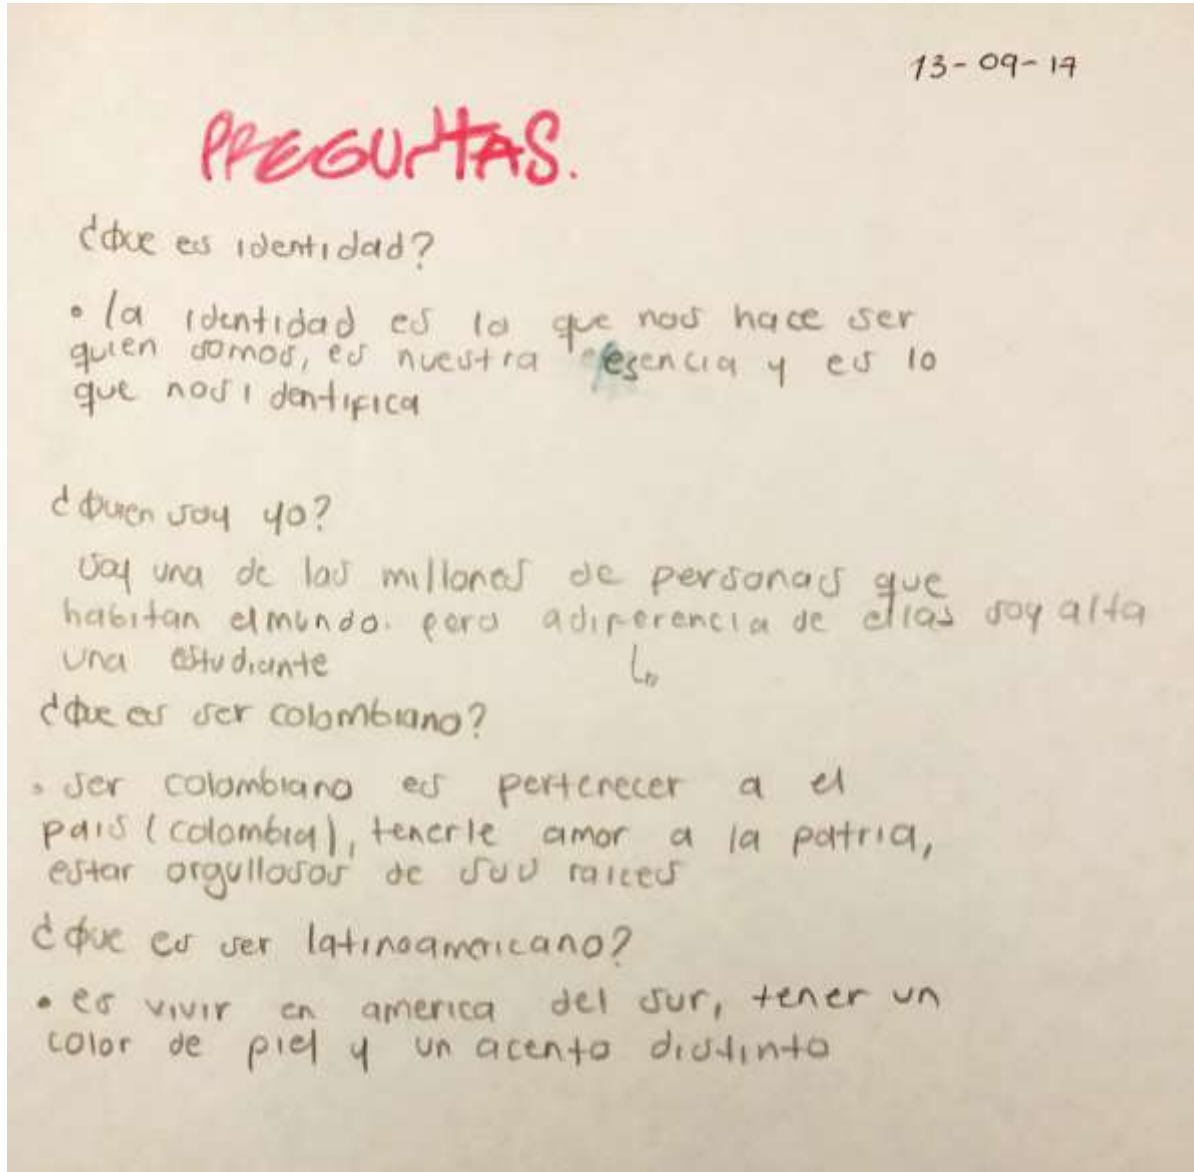 13-09-17
PREGUNTAS.
¿Que es identidad?
• la identidad es lo que nos hace ser
quien somos, es nuestra esencia y es lo
que nos identifica
¿Quien soy yo?
soy una de las millones de personas que
habitan el mundo. pero a diferencia de ellas soy alta
una estudiante
¿Que es ser colombiano?
• ser colombiano es pertenecer a el
pais (colombia), tenerle amor a la patria,
estar orgullosos de sus raices
¿Que es ser latinoamericano?
• es vivir en america del sur, tener un
color de piel y un acento distinto